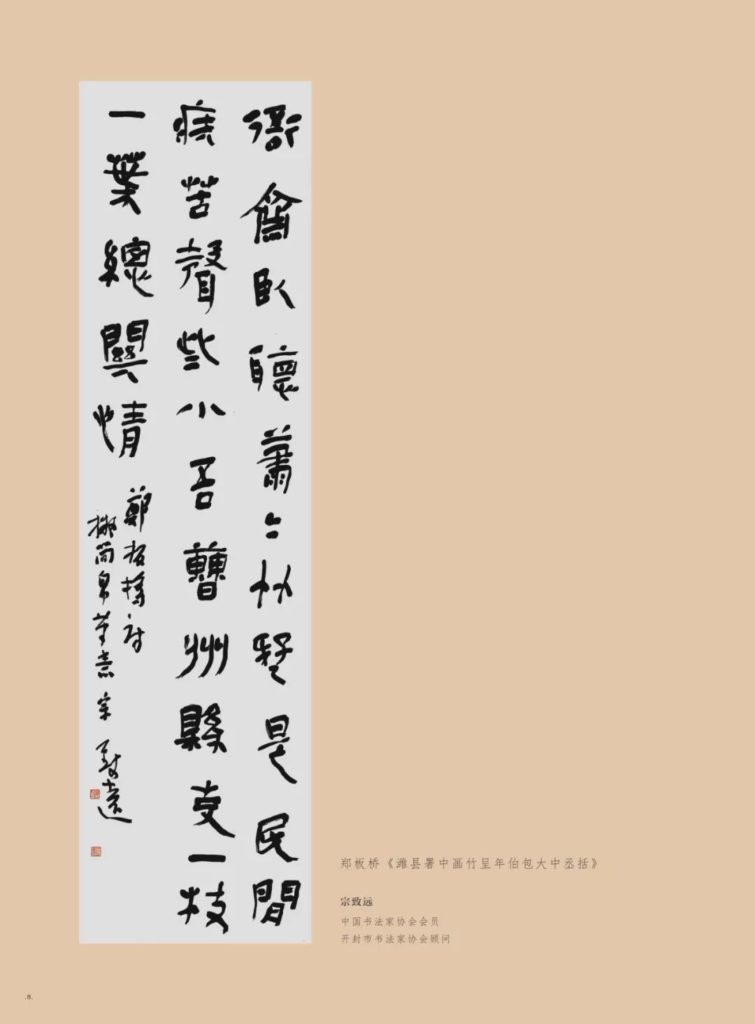 衙齋臥聽蕭〻竹疑是民間
疾苦聲些小吾曹州縣吏一枝
一葉總關情
鄭板橋詩
擬簡帛筆意 宗致遠
郑板桥《潍县署中画竹呈年伯包大中丞括》
宗致远
中国书法家协会会员
开封市书法家协会顾问
.8.